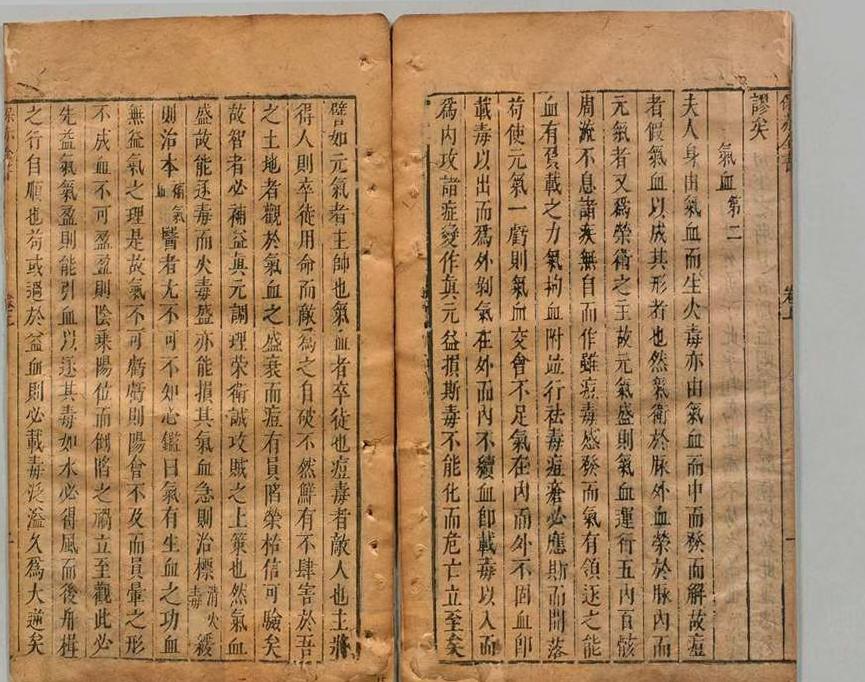 謬矣
氣血第二
夫人身由氣血而生火毒亦由氣血而中而發而解故痘
者假氣血以成其形者也然氣衛於脉外血榮於脉內而
元氣者又為榮衛之主故元氣盛則氣血運行五內百骸
周流不息諸疾無自而作雖痘毒感發而氣有領逐之能
血有負載之力氣拘血附竝行祛毒痘瘡必應期而開落
苟使元氣一虧則氣血交會不足氣在內而外不固血即
載毒以出而為外剝氣在外而內不續血即載毒以入而
為內攻諸症變作真元益損斯毒不能化而危亡立至矣
譬如元氣者主帥也氣血者卒徒也痘毒者敵人也主將
得人則卒徒用命而敵為之自破不然鮮有不肆害於吾
之土地者觀於氣血之盛衰而痘有員陷榮枯信可驗矣
故智者必補益真元調理榮衛誠攻賊之上策也然氣血
盛故能逐毒而火毒盛亦能損其氣血急則治標消火毒緩
則治本補氣血醫者尤不可不知心鑑曰氣有生血之功血
無益氣之理是故氣不可虧虧則陽會不及而員暈之形
不成血不可盈盈則陰乘陽位而倒陷之禍立至觀此必
先益氣氣盈則能引血以逐其毒如水必得風而後舟楫
之行自順也苟或過於益血則必載毒泛溢久為大逆矣